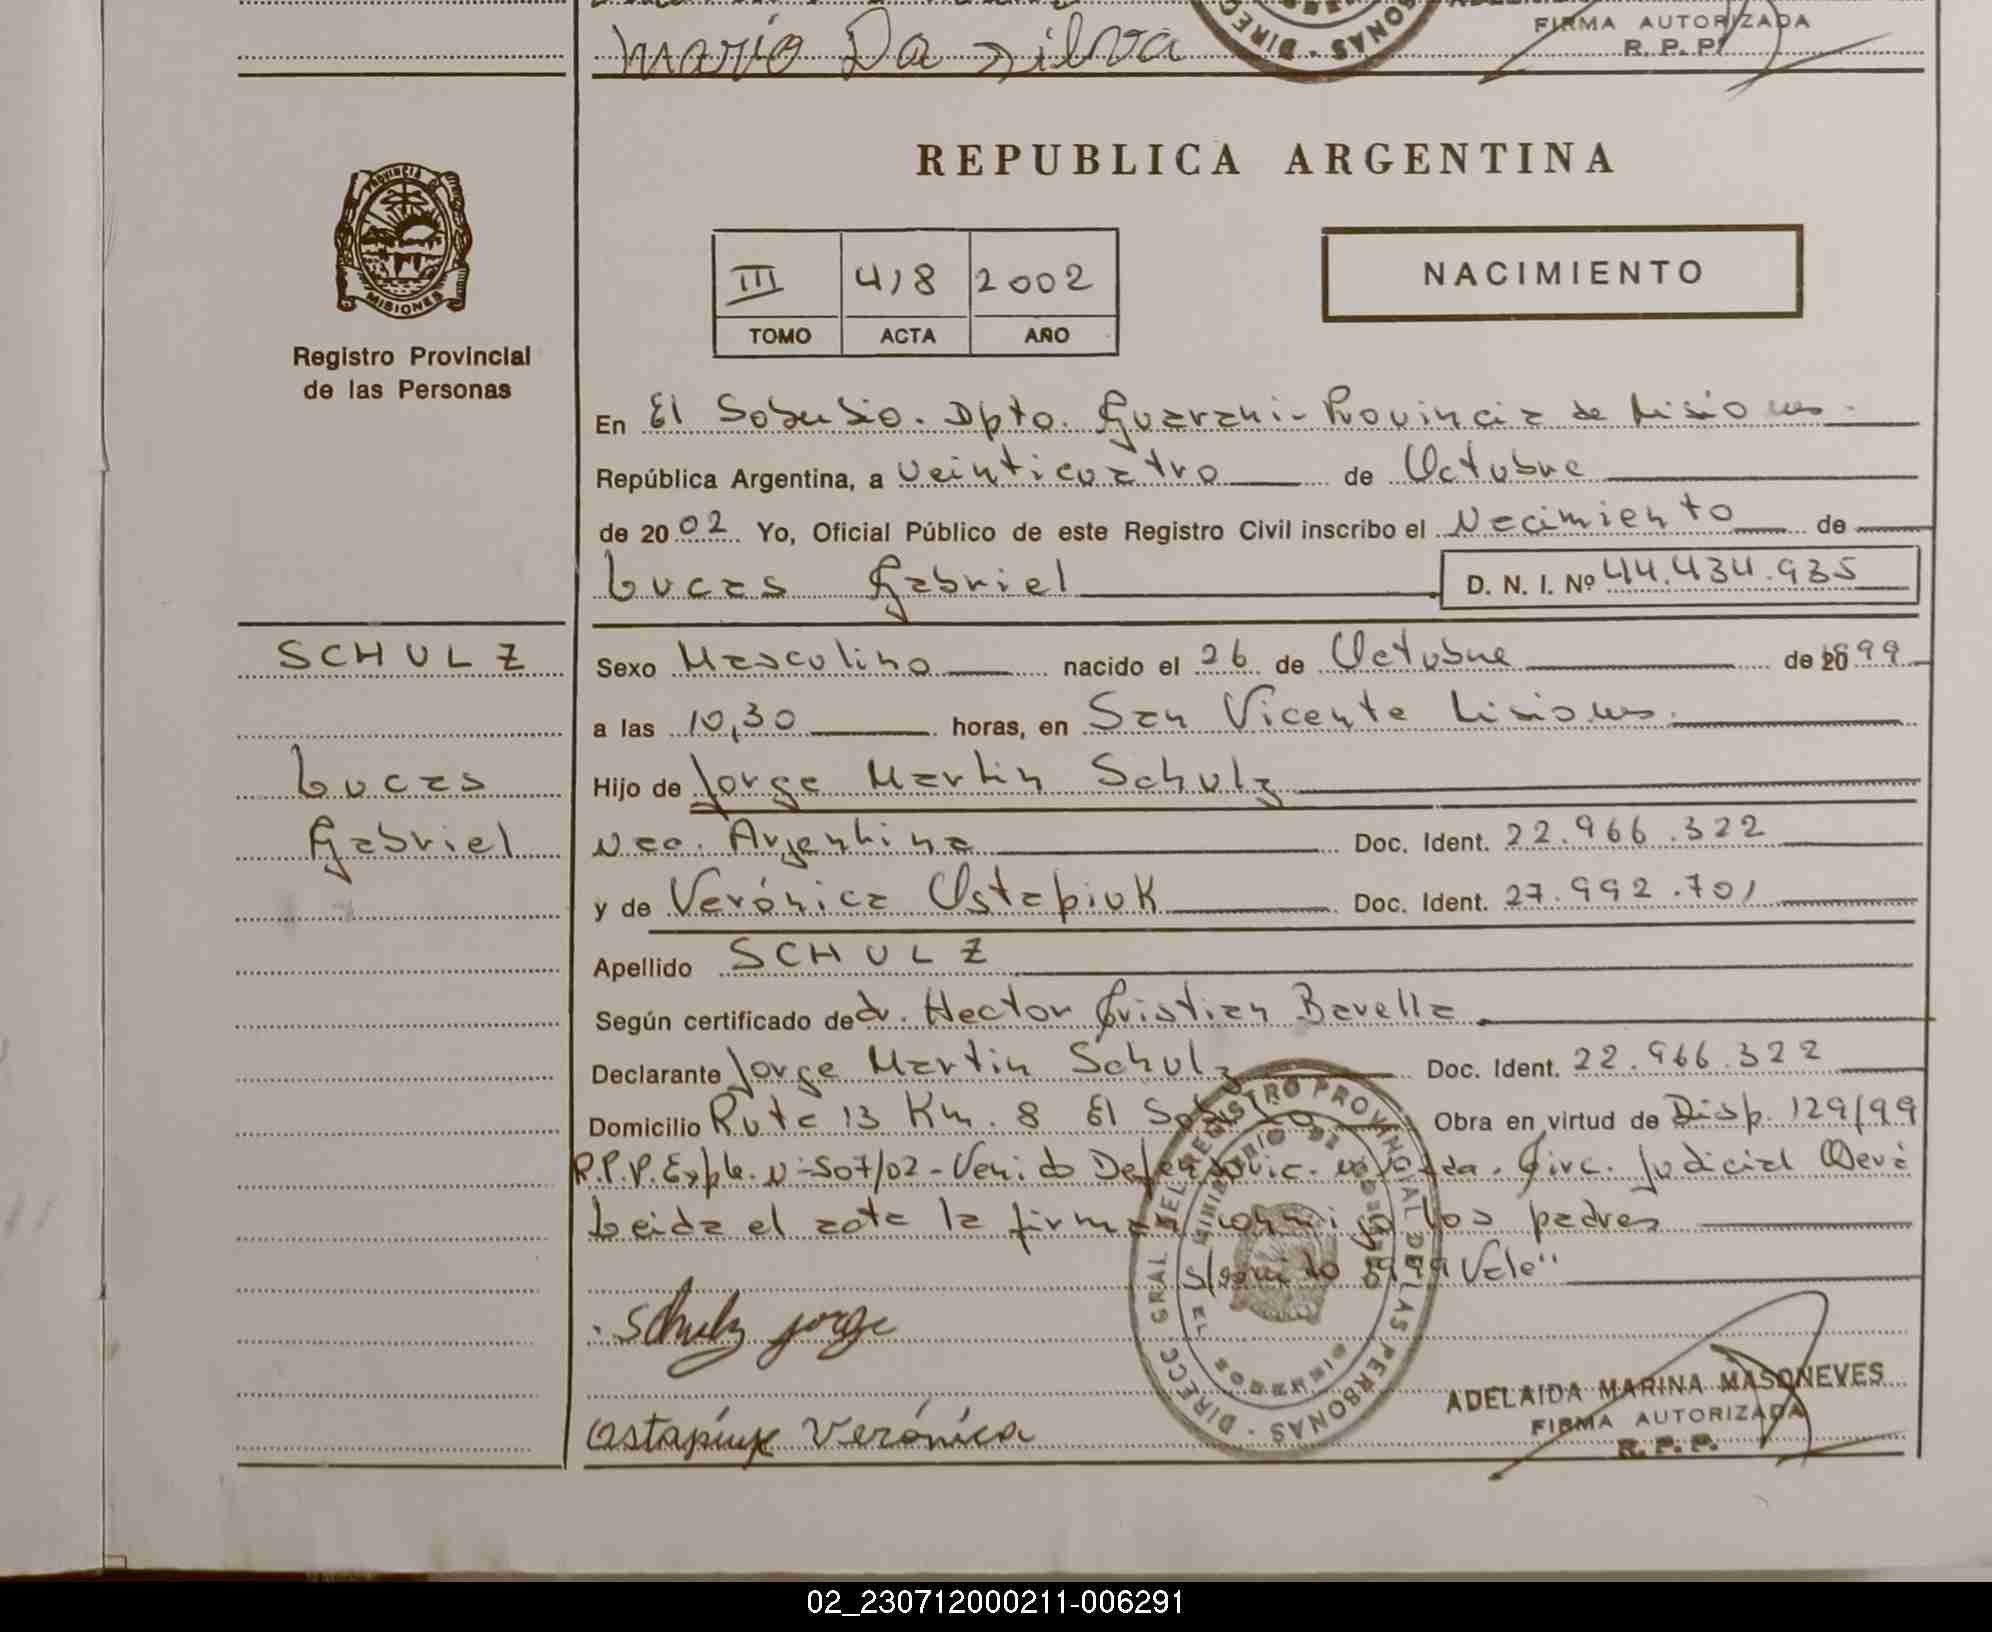 Mario Da Silva
DIRECC
ONAS
FIRMA AUTORIZADA
R. P. P.
PROVINCIA DE
MISIONES
Registro Provincial
de las Personas
REPUBLICA ARGENTINA
III 418 2002
TOMO ACTA AÑO
NACIMIENTO
En El Soberbio. Dpto. Guarani - Provincia de Misiones.
República Argentina, a veinticuatro de Octubre
de 20 02 Yo, Oficial Público de este Registro Civil inscribo el Nacimiento de
Lucas Gabriel D. N. I. Nº 44.434.935
SCHULZ
Lucas
Gabriel
Sexo Masculino nacido el 26 de Octubre de 1999
a las 10,30 horas, en San Vicente Misiones.
Hijo de Jorge Martin Schulz
Nac. Argentina Doc. Ident. 22.966.322
y de Verónica Ostapiuk Doc. Ident. 27.992.701
Apellido SCHULZ
Según certificado de dr. Hector Cristian Barella
Declarante Jorge Martin Schulz Doc. Ident. 22.966.322
Domicilio Ruta 13 Km. 8 El Soberbio Obra en virtud de Disp. 129/99
R.P.P. Expte. Nº 507/02 - Venido Circ. Judicial Oberá
Leida el acta la firman conmigo los padres
1999 Vale"
Schulz Jorge
Ostapiuk Verónica
DIRECC. GRAL DEL REGISTRO PROVINCIAL DE LAS PERSONAS
MINISTERIO DE GOBIERNO
MISIONES
ADELAIDA MARINA MASONEVES
FIRMA AUTORIZADA
R. P. P.
02_230712000211-006291